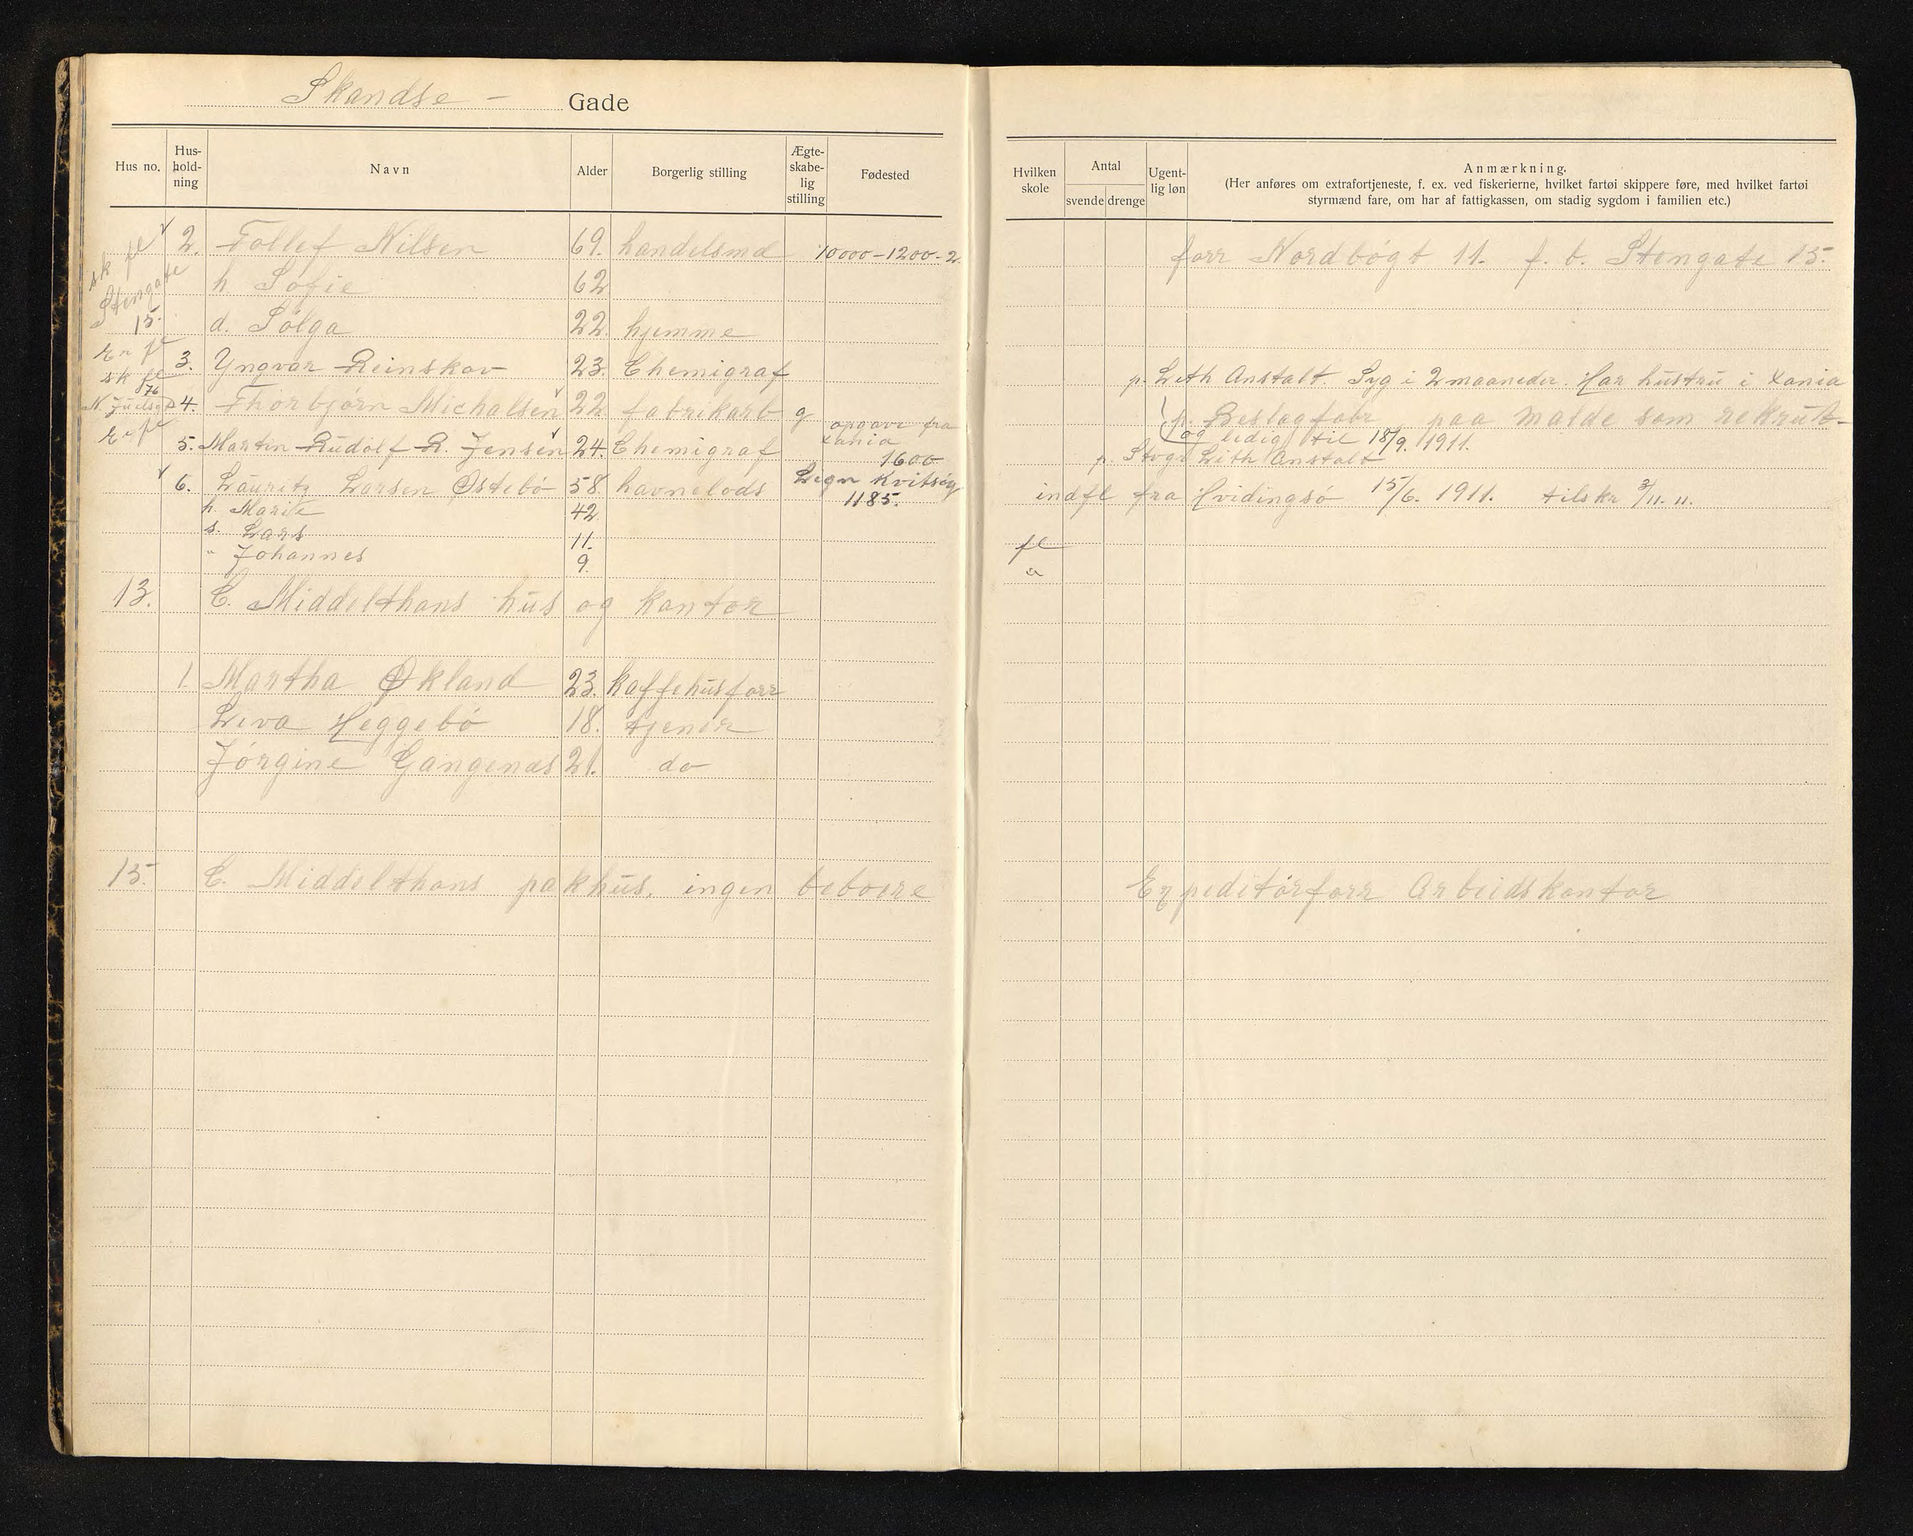 Skandse - Gade
Hus no. Hus-hold-ning Navn Alder Borgerlig stilling Ægte-skabe-lig stilling Fødested
Hvilken skole Antal svende drenge Ugent-lig løn Anmærkning.
(Her anføres om extrafortjeneste, f. ex. ved fiskerierne, hvilket fartøi skippere føre, med hvilket fartøi
styrmænd fare, om har af fattigkassen, om stadig sygdom i familien etc.)
sk fl Stengate 15
2. Tollef Nilsen 69. handelsmd 10000-1200-2 forr Nordbøgt 11. f. b. Stengate 15.
h Sofie 62
d. Sølga 22. hjemme
3. Yngvar Reinskov 23. Chemigraf p. Lith Anstalt. Syg i 2 maaneder. Har hustru i Xania
sk fl 76
4. Thorbjørn Michalsen 22. fabrikarb g p. Beslagfabr paa Malde som rekrut-
og ledig til 18/9. 1911.
5. Martin Rudolf R. Jensen 24. Chemigraf opgave fra Xania 1600 p. Stvgr Lith Anstalt
6. Lauritz Larsen Østebø 58. havnelods Legn Kvitsøy 1185. indfl fra Hvidingsø 15/6. 1911. tilskr 3/11. 11.
h. Marie 42
s. Lars 11. fl
" Johannes 9. "
13. C. Middelthons hus og kontor
1. Martha Økland 23. Kaffehusforr
Liva Heggebø 18. tjener
Jørgine Gangenæs 21. do
15. C. Middelthons pakhus, ingen beboere Expeditørforr Arbeidskontor